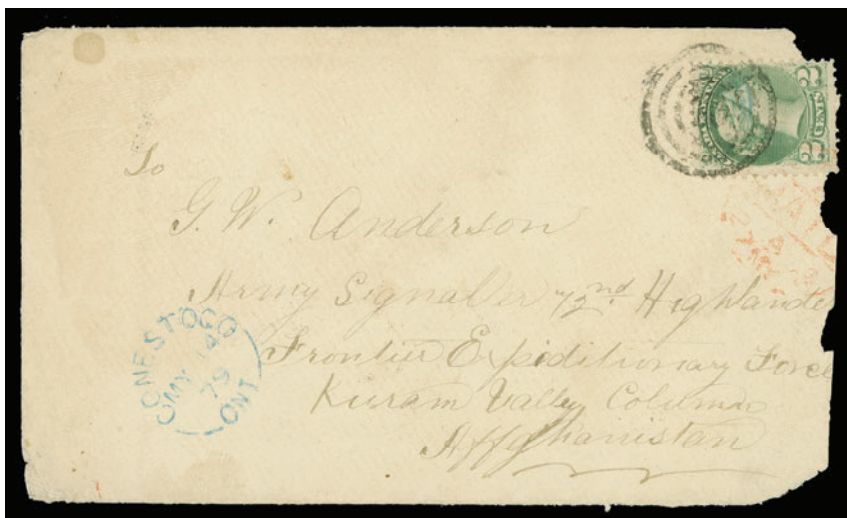 To
G. W. Anderson
Army Signaller 72nd Highlande
Frontier Expiditionary Force
Kuram Valley Column
Affghanistan
CONESTOGO
MY 14
79
ONT